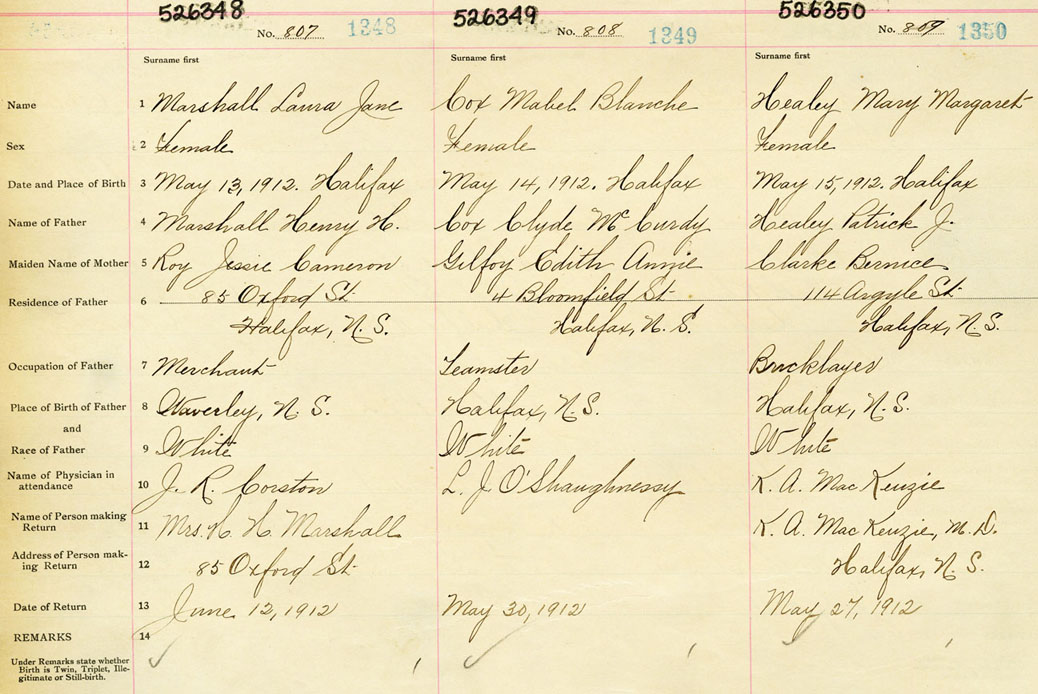 526348 526349 526350
No. 807 1348 No. 808 1349 No. 809 1350
Surname first Surname first Surname first
Name 1 Marshall Laura Jane Cox Mabel Blanche Healey Mary Margaret
Sex 2 Female Female Female
Date and Place of Birth 3 May 13, 1912. Halifax May 14, 1912. Halifax May 15, 1912. Halifax
Name of Father 4 Marshall Henry H. Cox Clyde McCurdy Healey Patrick J.
Maiden Name of Mother 5 Roy Jessie Cameron Gilfoy Edith Annie Clarke Bernice
Residence of Father 6 85 Oxford St. 4 Bloomfield St. 114 Argyle St.
Halifax, N.S. Halifax, N.S. Halifax, N.S.
Occupation of Father 7 Merchant Teamster Bricklayer
Place of Birth of Father 8 Waverley, N.S. Halifax, N.S. Halifax, N.S.
and
Race of Father 9 White White White
Name of Physician in
attendance 10 J. R. Corston L. J. O'Shaughnessy K. A. MacKenzie
Name of Person making
Return 11 Mrs. H. H. Marshall K. A. MacKenzie, M.D.
Address of Person mak-
ing Return 12 85 Oxford St. Halifax, N.S.
Date of Return 13 June 12, 1912 May 30, 1912 May 27, 1912
REMARKS 14
Under Remarks state whether
Birth is Twin, Triplet, Ille-
gitimate or Still-birth.